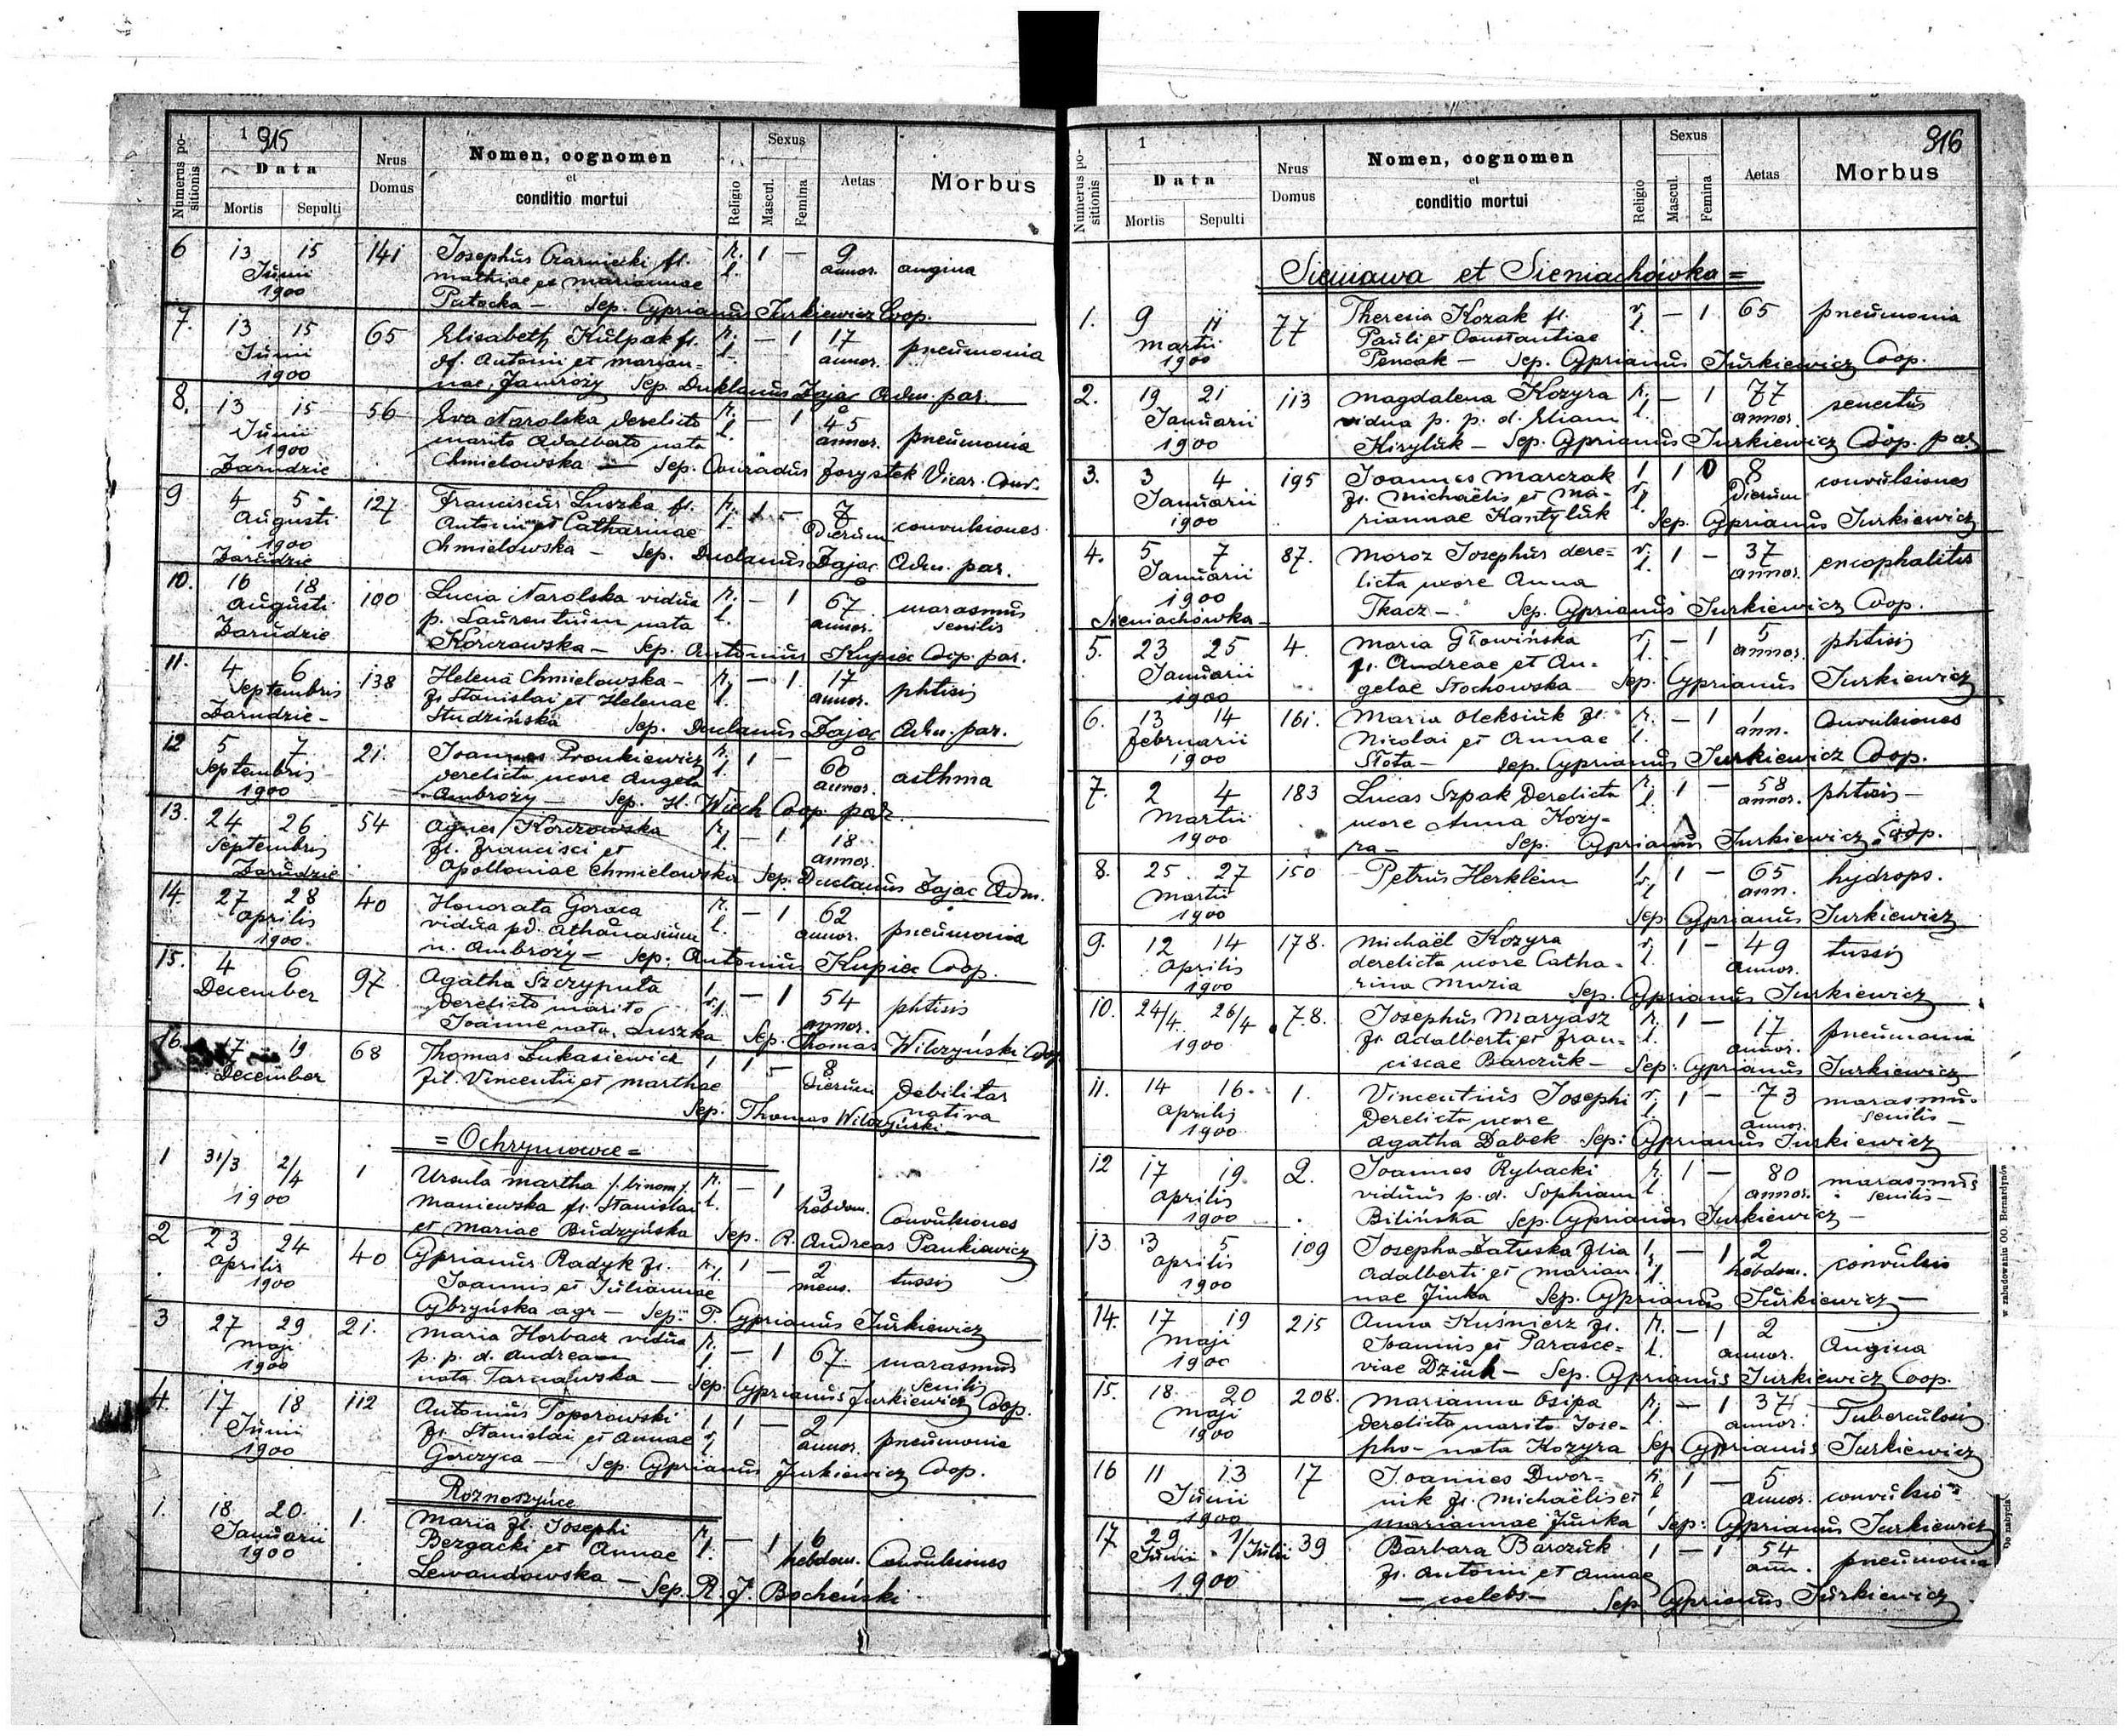 915
Numerus positionis
Data
Mortis Sepulti
Nrus Domus
Nomen, cognomen
et
conditio mortui
Religio
Sexus
Mascul. Femina
Aetas
Morbus
6 13 15 141 Josephus Czarniecki fl. r. 1 — 9
Junii mathiae et mariannae l. annor. angina
1900 Patocka — Sep. Cyprianus Jurkiewicz Coop.
7. 13 15 65 Elisabeth Kulpak fl. r. — 1 17
Junii df. Antonii et marian= l. annor. pneumonia
1900 nae, Jamroży Sep. Duklanus Zając Adm. par.
8. 13 15 56 Eva Narolska derelicto r. — 1 45
Junii marito Adalberto nata l. annor. pneumonia
1900 Chmielowska — Sep. Conradus Forystek Vicar. Conv.
Zarudzie
9 4 5 127 Franciscus Luszka fl. r. 1 — 7
Augusti Antonii et Catharinae l. Dierum convulsiones
1900 Chmielowska — Sep. Duclanus Zając Adm. par.
Zarudzie
10. 16 18 100 Lucia Narolska vidua r. — 1 67 marasmus
Augusti p. Laurentium nata l. annor. senilis
Zarudzie Korczowska — Sep. Antonius Kupiec Coop. par.
11. 4 6 138 Helena Chmielowska — r. — 1. 17
Septembris fl. Stanislai et Helenae l. annor. phtisis
Zarudzie — Studzińska Sep. Duclanus Zając Adm. par.
12 5 7 21. Joannes Fronkiewicz r. 1 — 60
Septembris derelicta uxore Angela l. annor. asthma
1900 Ambroży — Sep. H. Wiech Coop. par.
13. 24 26 54 Agnes Korczowska r. — 1 18
Septembris fl. Francisci et l. annor.
Zarudzie Apolloniae Chmielowska Sep. Duclanus Zając Adm.
14. 27 28 40 Honorata Goraca r. — 1 62
Aprilis vidua pd. Athanasium l. annor. pneumonia
1900. n. Ambroży — Sep: Antonius Kupiec Coop.
15. 4 6 97 Agatha Szczyputa r. — 1 54 phtisis
December derelicto marito l. annor.
Joanne nata Luszka Sep. Thomas Wilczyński Coop
16. 17 19 68 Thomas Łukasiewicz 1 8
December fil. Vincentii et marthae Dierum Debilitas
Sep. Thomas Wilczyński — nativa
= Ochrymowce =
1 31/3 2/4 1 Ursula martha /. binom /. r. — 1 3
1900 Maniewska fl. Stanislai l. hebdom. Convulsiones
et Mariae Budzyńska Sep. R. Andreas Pankiewicz
2 23 24 40 Cyprianus Radyk fl. r. 1 — 2
Aprilis Joannis et Julianae l. mens. tussis
1900 Cybzyńska agr — Sep: P. Cyprianus Jurkiewicz
3 27 29 21. Maria Horbacz vidua r. — 1 67 marasmus
maji p. p. d. Andream l. senilis
1900 nata Tarnawska — Sep. Cyprianus Jurkiewicz Coop.
4. 17 18 112 Antonius Toporowski 1 — 2
Junii fl. Stanislai et Annae annor. pneumonia
1900 Gorczyca — Sep. Cyprianus Jurkiewicz Coop.
Roznoszyńce
1. 18 20. 1. Maria fl. Josephi r. — 1 6
Januarii Bezgacki et Annae l. hebdom. Convulsiones
1900 Lewandowska — Sep. R. J. Bocheński
916
Numerus positionis
Data
Mortis Sepulti
Nrus Domus
Nomen, cognomen
et
conditio mortui
Religio
Sexus
Mascul. Femina
Aetas
Morbus
Sieniawa et Sieniachówka =
1. 9 11 77 Theresia Kozak fl. r. — 1. 65 pneumonia
martii Pauli et Constantiae l.
1900 Pencak — Sep. Cyprianus Jurkiewicz Coop.
2. 19 21 113 Magdalena Kozyra r. — 1 77 senectus
Januarii vidua p. p. d. Eliam l. annor.
1900 Kiryluk — Sep. Cyprianus Jurkiewicz Coop. par.
3. 3 4 195 Joannes Marczak r. 1 8 convulsiones
Januarii fl. Michaëlis et Ma- l. Dierum
1900 riannae Kantyluk Sep. Cyprianus Jurkiewicz
4. 5 7 87. Moroz Josephus dere= r. 1 — 37 encephalitis
Januarii licta uxore Anna l. annor.
1900 Tkacz — Sep. Cyprianus Jurkiewicz Coop.
Sieniachówka —
5. 23 25 4. Maria Głowińska r. — 1 5 phtisis
Januarii fl. Andreae et An= l. annor.
1900 gelae Stochowska — Sep. Cyprianus Jurkiewicz
6. 13 14 161. Maria Oleksiuk fl. r. — 1 1 Convulsiones
Februarii Nicolai et Annae l. ann.
1900 Stota — Sep. Cyprianus Jurkiewicz Coop.
7. 2 4 183 Lucas Szpak Derelicta r. 1 — 58 phtisis —
Martii uxore Anna Kozy= l. annor.
1900 ra — Sep. Cyprianus Jurkiewicz Coop.
8. 25. 27 150 Petrus Herklem r. 1 — 65 hydrops.
Martii l. ann.
1900 Sep Cyprianus Jurkiewicz
9. 12 14 178. Michaël Kozyra r. 1 — 49 tussis
Aprilis derelicta uxore Catha- l. annor.
1900 rina Muzia Sep. Cyprianus Jurkiewicz
10. 24/4. 26/4 78. Josephus Maryasz r. 1 — 17 pneumonia
1900 fl. Adalberti et Fran= l. annor.
ciscae Barczuk — Sep: Cyprianus Jurkiewicz
11. 14 16. 1. Vincentius Josephi r. 1 — 73 marasmus
Aprilis Derelicta uxore l. annor. senilis —
1900 Agatha Dabek Sep: Cyprianus Jurkiewicz
12 17 19 2. Joannes Rybacki r. 1 — 80 marasmus
Aprilis viduus p. d. Sophiam l. annor. senilis —
1900 Bilińska Sep. Cyprianus Jurkiewicz —
13 3 5 109 Josepha Załuska filia r. — 1 2
Aprilis Adalberti et Marian l. hebdom. convulsio
1900 nae Jinka Sep. Cyprianus Jurkiewicz —
14. 17 19 215 Anna Kuśnierz fl. r. — 1 2
Maji Joannis et Parasce= l. annor. Angina
1900 viae Dziuk — Sep. Cyprianus Jurkiewicz Coop.
15. 18. 20 208. Marianna Osipa r. — 1 37
Maji derelicta marito Jose= l. annor. Tuberculosis
1900 pho — nata Kozyra Sep Cyprianus Jurkiewicz
16 11 13 17 Joannes Dwor= r. 1 — 5
Junii nik fl. Michaëlis et l annor. convulsio
1900 Mariannae Jinka Sep: Cyprianus Jurkiewicz
17 29 1/Julii 39 Barbara Barczuk 1 — 1 54
Junii fl. Antonii et Annae ann. pneumonia
1900 — coelebs — Sep Cyprianus Jurkiewicz
w zabudowaniu OO. Bernardynów
Do nabycia